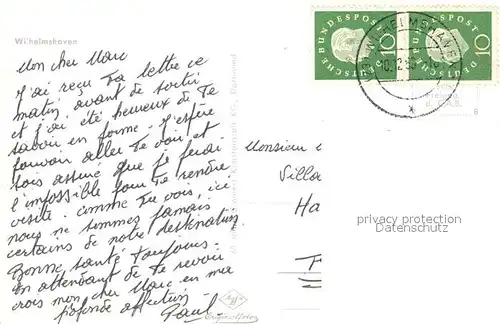 Wilhelmshaven
Mon cher Marc
J'ai reçu Ta lettre ce
matin, avant de sortir
et j'ai été heureux de Te
savoir en forme. J'espère
pouvoir aller Te voir et
sois assuré que je ferai
l'impossible pour Te rendre
visite. Comme Tu vois, ici
nous ne sommes jamais
certains de notre destination.
Bonne santé Toujours.
en attendant de Te revoir
crois mon cher Marc en ma
profonde affection
Paul
DEUTSCHE BUNDESPOST
10
DEUTSCHE BUNDESPOST
10
WILHELMSHAVEN
Monsieur
Villa
Ha
F
privacy protection
Datenschutz